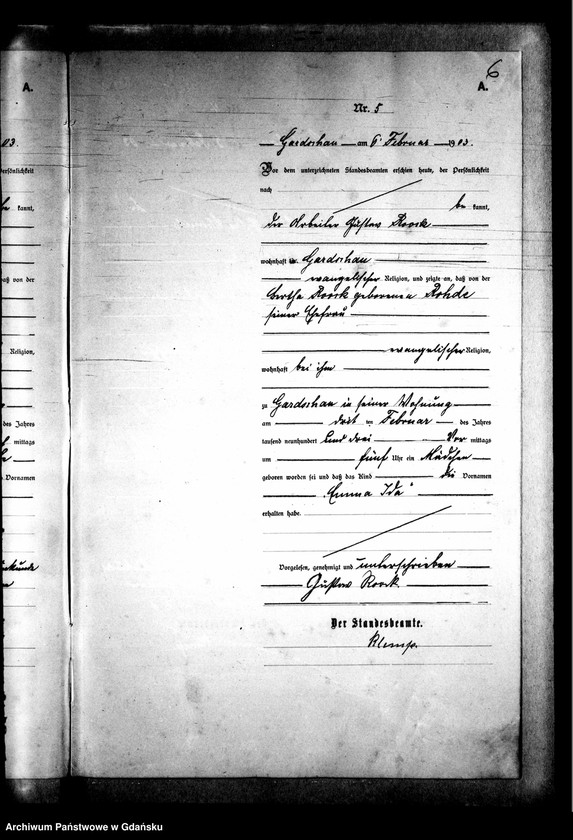 6
A.
A.
Nr. 5
03.
Gardschau am 6 Februar 1903.
Persönlichkeit
Vor dem unterzeichneten Standesbeamten erschien heute, der Persönlichkeit
nach
kannt,
be kannt,
der Arbeiter Gustav Roock
wohnhaft in Gardschau
evangelischer Religion, und zeigte an, daß von der
daß von der
Bertha Roock geborenen Rohde
seiner Ehefrau
Religion,
evangelischer Religion,
wohnhaft bei ihm
zu Gardschau in seiner Wohnung
des Jahres
am drei ten Februar des Jahres
mittags
tausend neunhundert und drei Vor mittags
um fünf Uhr ein Mädchen
Vornamen
geboren worden sei und daß das Kind die Vornamen
"Emma Ida"
erhalten habe.
Vorgelesen, genehmigt und unterschrieben
Gustav Roock.
Der Standesbeamte.
Klemp.
Archiwum Państwowe w Gdańsku